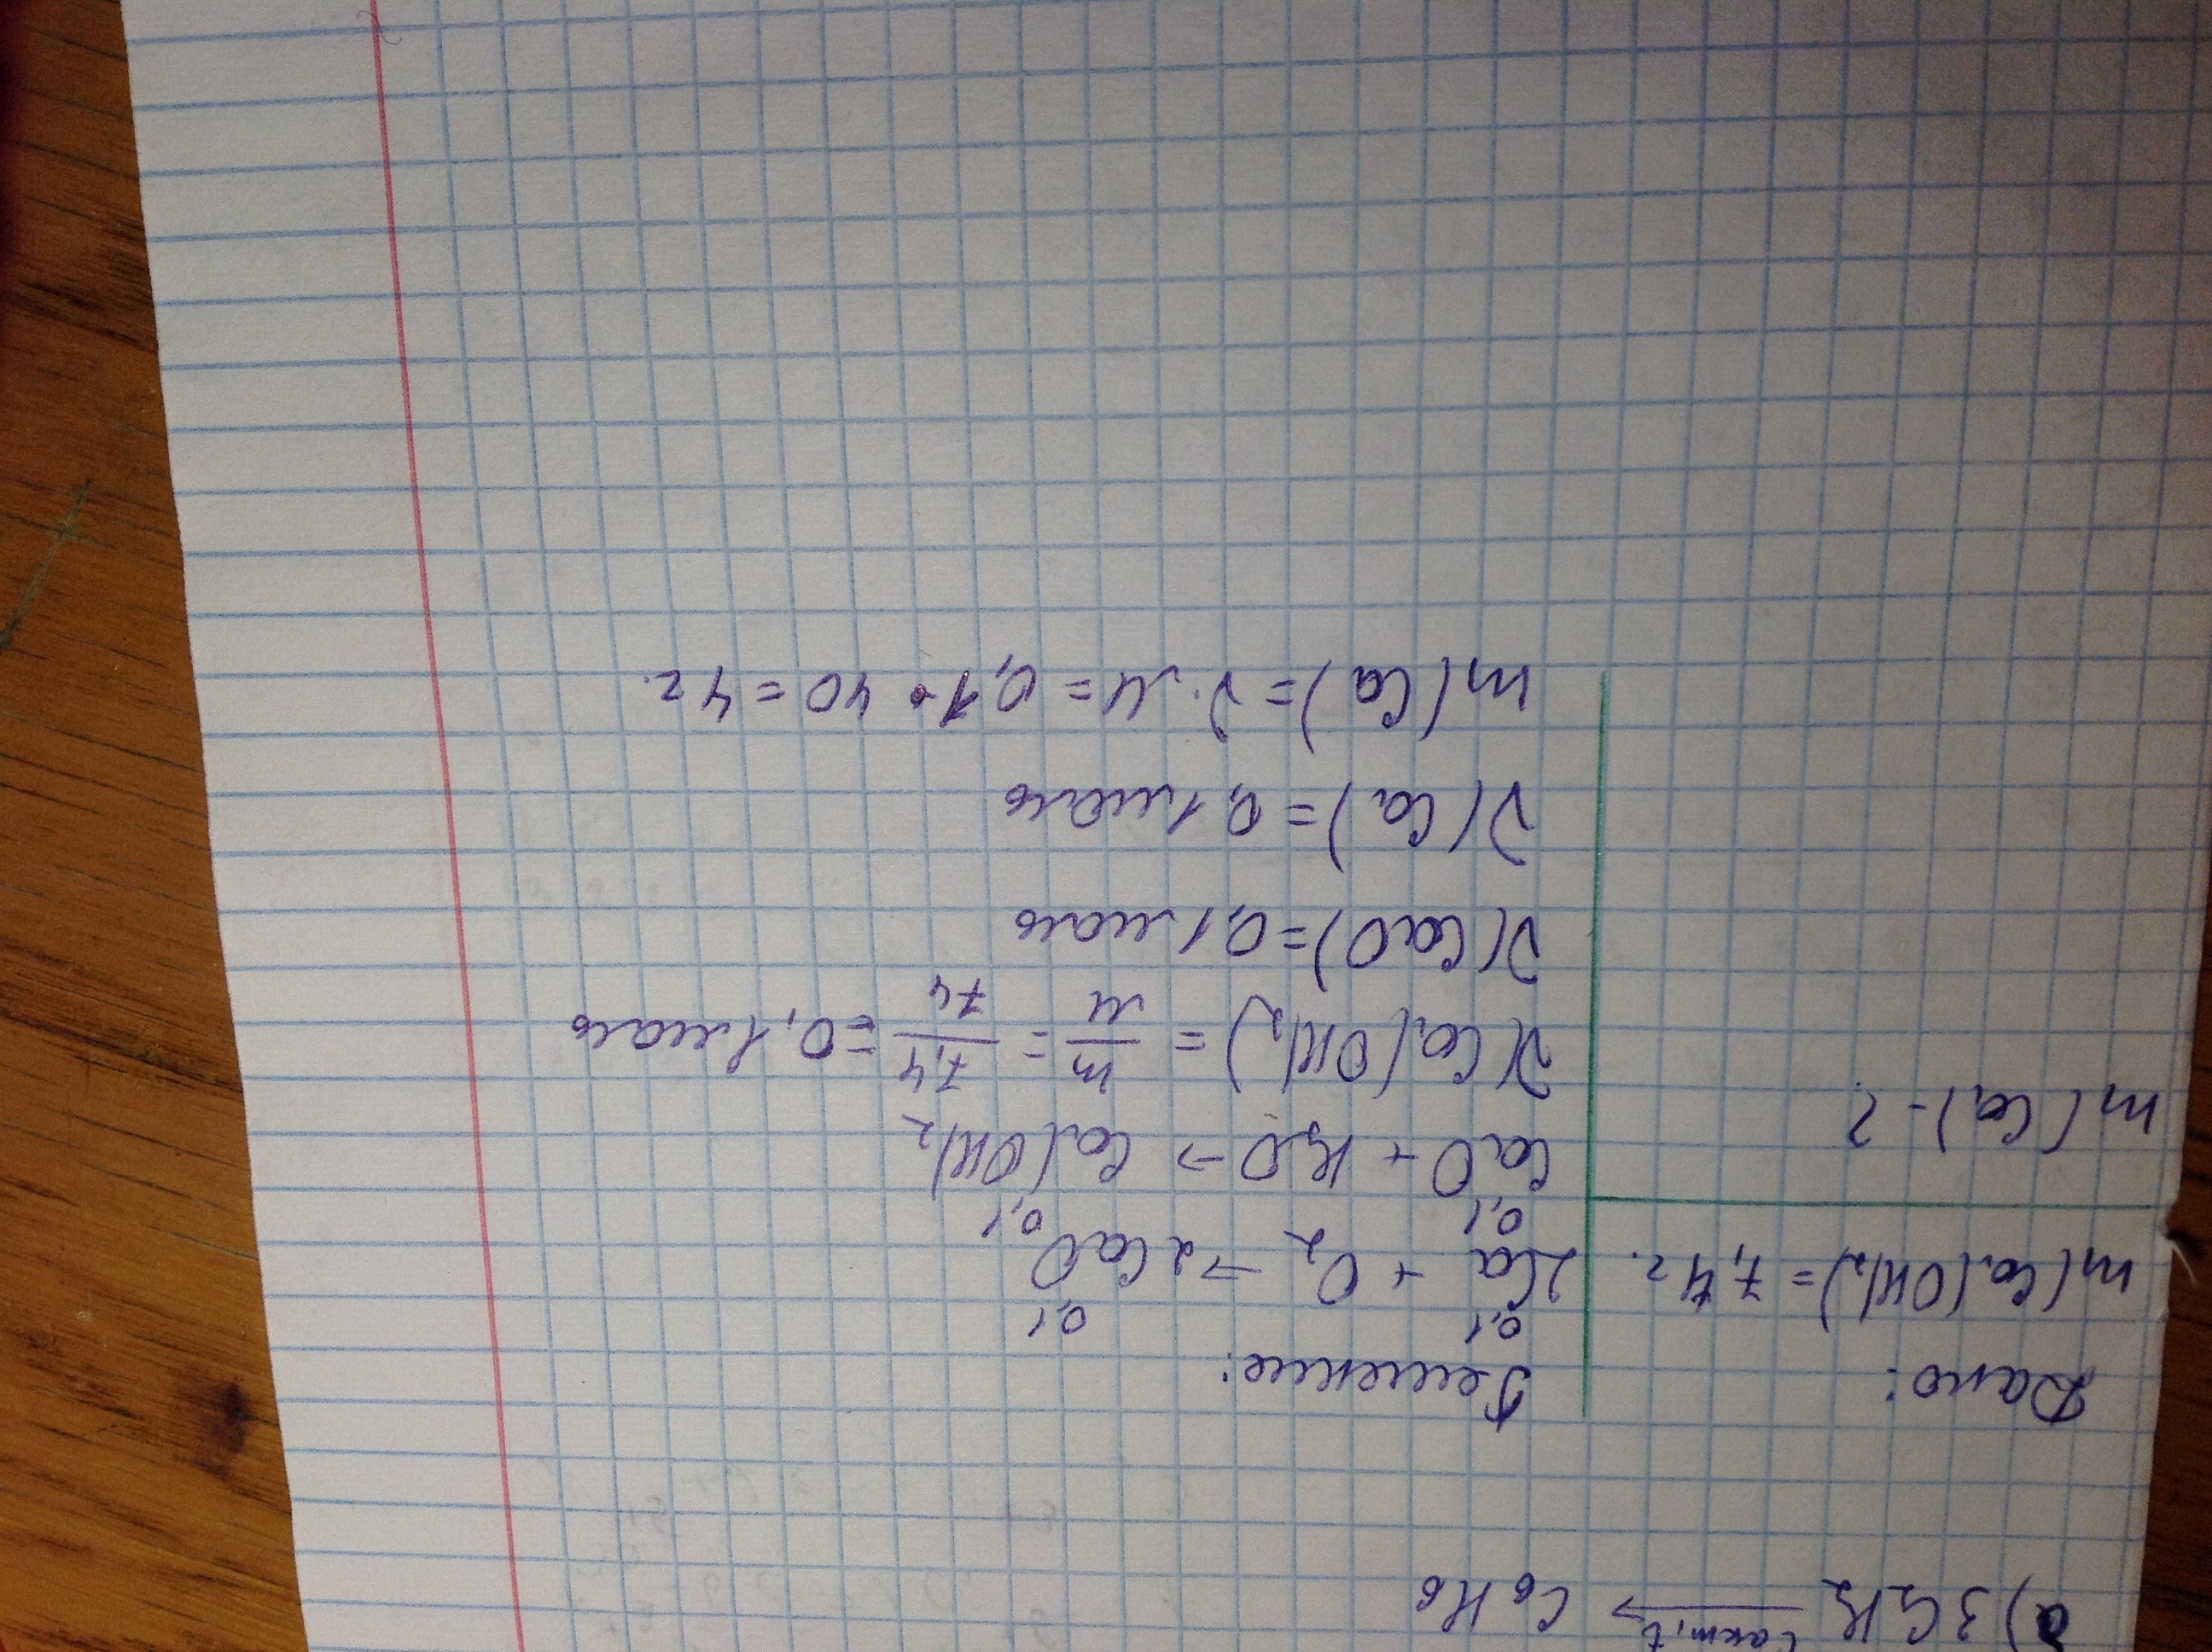 а) 3C₂H₂ —Cакт, t→ C₆H₆
Дано:
m(Ca(OH)₂) = 7,4 г.
m(Ca) - ?
Решение:
0,1 0,1
2Ca + O₂ → 2CaO
0,1 0,1
CaO + H₂O → Ca(OH)₂
ν(Ca(OH)₂) = m/M = 7,4/74 = 0,1 моль
ν(CaO) = 0,1 моль
ν(Ca) = 0,1 моль
m(Ca) = ν · M = 0,1 • 40 = 4 г.